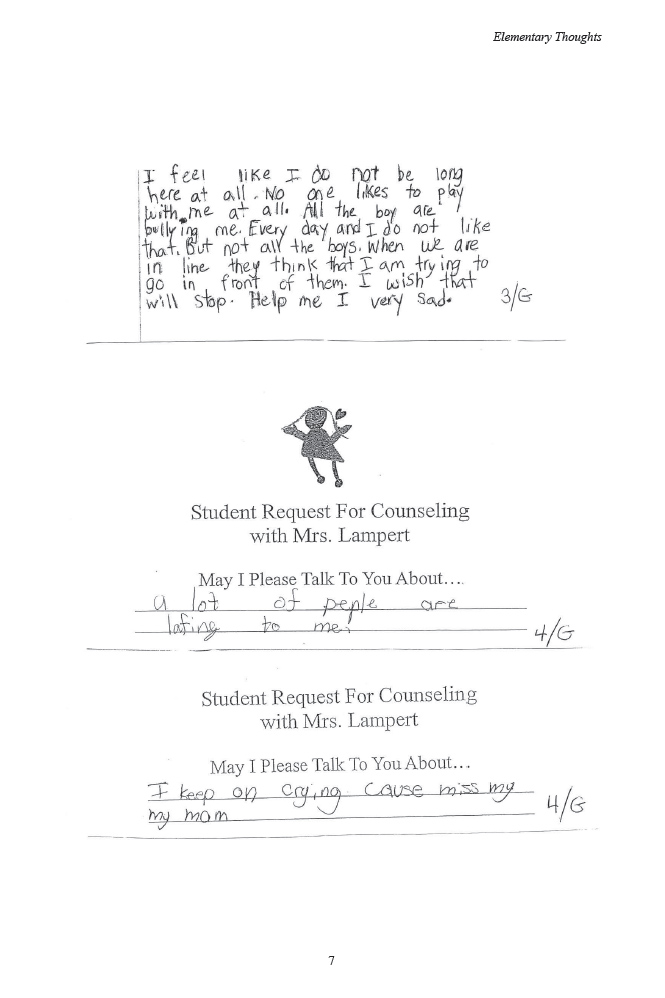 Elementary Thoughts
I feel like I do not be long
here at all. No one likes to play
with me at all. All the boy are
bullying me. Every day and I do not like
that. But not all the boys. When we are
in line they think that I am trying to
go in front of them. I wish that
will stop. Help me I very sad.
3/G
Student Request For Counseling
with Mrs. Lampert
May I Please Talk To You About…
a lot of peple are
lafing to me.
4/G
Student Request For Counseling
with Mrs. Lampert
May I Please Talk To You About…
I keep on crying Cause miss my
my mom
4/G
7